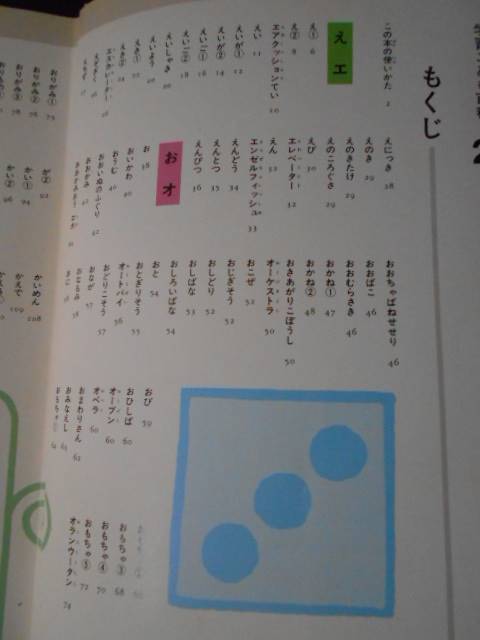 もくじ
この本の使いかた 2
え エ
え① 6
え② 9
エアクッションてい 10
えい 11
えいが① 12
えいが② 14
えいご① 16
えいご② 18
えいしゃき 20
えいよう 20
えき① 22
えき② 24
エスカレーター
えにっき 28
えのき 29
えのきたけ 29
えのころぐさ 29
えび 30
エレベーター 32
えん 32
エンゼルフィッシュ 33
えんどう 34
えんとつ 35
えんぴつ 36
お オ
お 38
おいかわ 40
おうむ 40
おおいぬのふぐり 42
おおかみ 42
おおちゃばねせせり 46
おおばこ 46
おおむらさき 46
おかね① 47
おかね② 48
おきあがりこぼうし 50
オーケストラ 50
おこぜ 52
おじぎそう 52
おしどり 52
おしばな 53
おしろいばな 54
おと 54
おとぎりそう 55
オートバイ 56
おどりこそう 57
おなが 57
おなもみ 58
おに 58
おび 59
おひしば 60
オーブン 60
オペラ 60
おまわりさん 62
おみなえし 63
おもちゃ① 64
おもちゃ② 66
おもちゃ③ 68
おもちゃ④ 70
おもちゃ⑤ 72
オランウータン 74
おりがみ① 75
おりがみ② 76
おりがみ③ 78
が② 92
かい① 94
かい② 96
かいめん 108
かえで 109